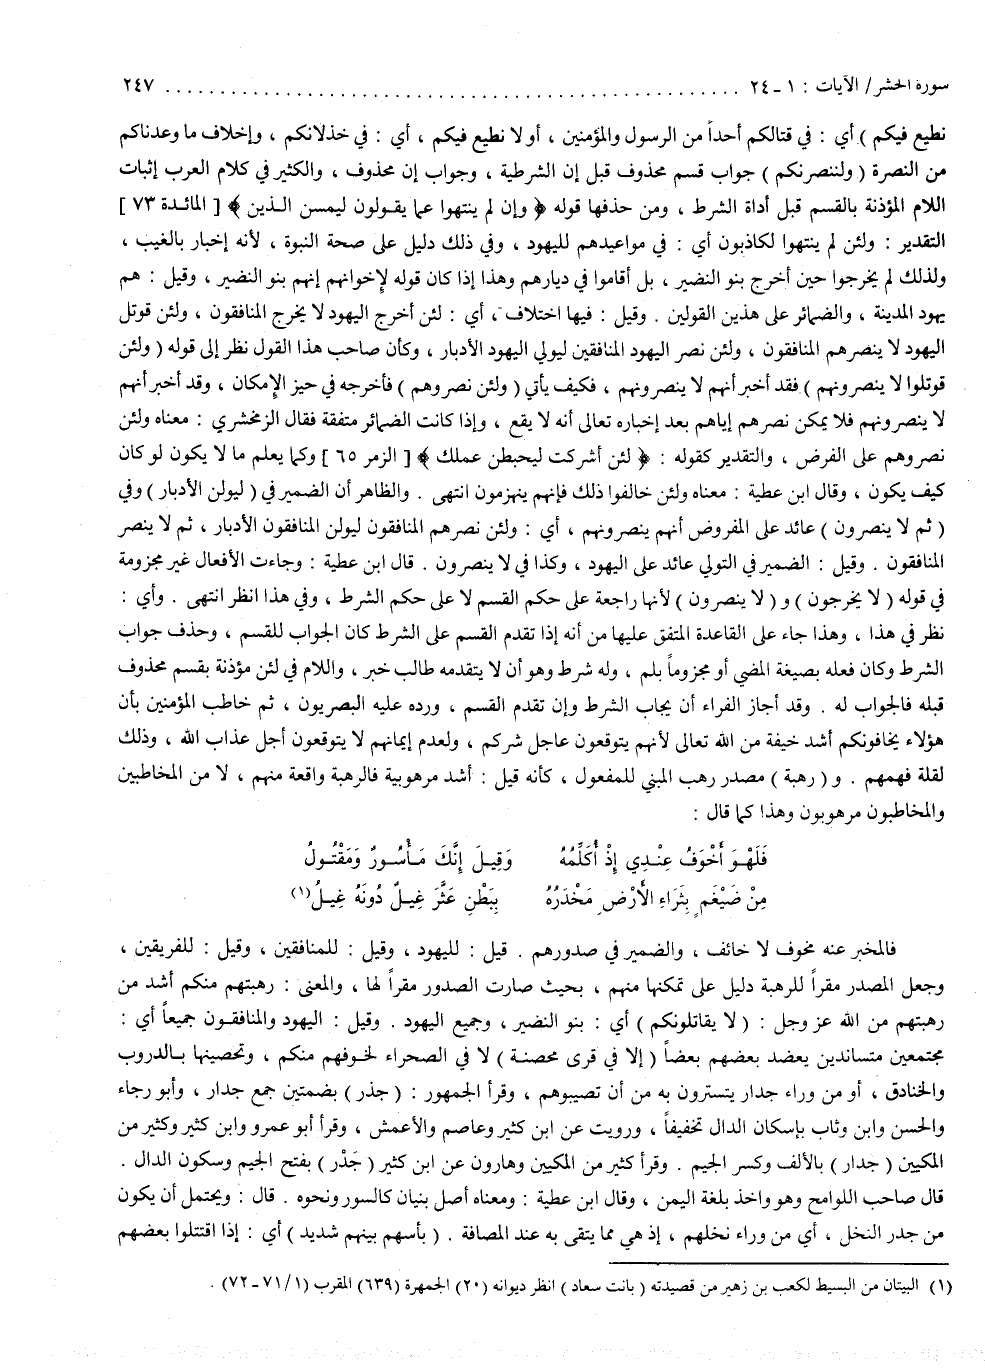 سورة الحشر / الآيات : ١ ـ ٢٤ ........................................................ ٢٤٧
نطيع فيكم ) أي : في قتالكم أحداً من الرسول والمؤمنين ، أو لا نطيع فيكم ، أي : في خذلانكم ، وإخلاف ما وعدناكم
من النصرة ( ولننصرنكم ) جواب قسم محذوف قبل إن الشرطية ، وجواب إن محذوف ، والكثير في كلام العرب إثبات
اللام المؤذنة بالقسم قبل أداة الشرط ، ومن حذفها قوله ﴿ وإن لم ينتهوا عما يقولون ليمسن الذين ﴾ [ المائدة ٧٣ ]
التقدير : ولئن لم ينتهوا لكاذبون أي : في مواعيدهم لليهود ، وفي ذلك دليل على صحة النبوة ، لأنه إخبار بالغيب ،
ولذلك لم يخرجوا حين أخرج بنو النضير ، بل أقاموا في ديارهم وهذا إذا كان قوله لإخوانهم إنهم بنو النضير ، وقيل : هم
يهود المدينة ، والضمائر على هذين القولين . وقيل : فيها اختلاف ، أي : لئن أخرج اليهود لا يخرج المنافقون ، ولئن قوتل
اليهود لا ينصرهم المنافقون ، ولئن نصر اليهود المنافقين ليولي اليهود الأدبار ، وكأن صاحب هذا القول نظر إلى قوله ( ولئن
قوتلوا لا ينصرونهم ) فقد أخبر أنهم لا ينصرونهم ، فكيف يأتي ( ولئن نصروهم ) فأخرجه في حيز الإمكان ، وقد أخبر أنهم
لا ينصرونهم فلا يمكن نصرهم إياهم بعد إخباره تعالى أنه لا يقع ، وإذا كانت الضمائر متفقة فقال الزمخشري : معناه ولئن
نصروهم على الفرض ، والتقدير كقوله : ﴿ لئن أشركت ليحبطن عملك ﴾ [ الزمر ٦٥ ] وكما يعلم ما لا يكون لو كان
كيف يكون ، وقال ابن عطية : معناه ولئن خالفوا ذلك فإنهم ينهزمون انتهى . والظاهر أن الضمير في ( ليولن الأدبار ) وفي
( ثم لا ينصرون ) عائد على المفروض أنهم ينصرونهم ، أي : ولئن نصرهم المنافقون ليولن المنافقون الأدبار ، ثم لا ينصر
المنافقون . وقيل : الضمير في التولي عائد على اليهود ، وكذا في لا ينصرون . قال ابن عطية : وجاءت الأفعال غير مجزومة
في قوله ( لا يخرجون ) و ( لا ينصرون ) لأنها راجعة على حكم القسم لا على حكم الشرط ، وفي هذا انظر انتهى . وأي :
نظر في هذا ، وهذا جاء على القاعدة المتفق عليها من أنه إذا تقدم القسم على الشرط كان الجواب للقسم ، وحذف جواب
الشرط وكان فعله بصيغة المضي أو مجزوماً بلم ، وله شرط وهو أن لا يتقدمه طالب خبر ، واللام في لئن مؤذنة بقسم محذوف
قبله فالجواب له . وقد أجاز الفراء أن يجاب الشرط وإن تقدم القسم ، ورده عليه البصريون ، ثم خاطب المؤمنين بأن
هؤلاء يخافونكم أشد خيفة من الله تعالى لأنهم يتوقعون عاجل شركم ، ولعدم إيمانهم لا يتوقعون أجل عذاب الله ، وذلك
لقلة فهمهم . و ( رهبة ) مصدر رهب المبني للمفعول ، كأنه قيل : أشد مرهوبية فالرهبة واقعة منهم ، لا من المخاطبين
والمخاطبون مرهوبون وهذا كما قال :
فَلَهْوَ أَخْوَفُ عِنْدِي إِذْ أُكَلِّمُهُ     وَقِيلَ إِنَّكَ مَأْسُورٌ وَمَقْتُولُ
مِنْ ضَيْغَمٍ بِثَرَاءِ الأَرْضِ مَخْدَرُهُ     بِبَطْنِ عَثَّرَ غِيلٌ دُونَهُ غِيلُ(١)
فالمخبر عنه مخوف لا خائف ، والضمير في صدورهم . قيل : لليهود ، وقيل : للمنافقين ، وقيل : للفريقين ،
وجعل المصدر مقراً للرهبة دليل على تمكنها منهم ، بحيث صارت الصدور مقراً لها ، والمعنى : رهبتهم منكم أشد من
رهبتهم من الله عز وجل : ( لا يقاتلونكم ) أي : بنو النضير ، وجميع اليهود . وقيل : اليهود والمنافقون جميعاً أي :
مجتمعين متساندين يعضد بعضهم بعضاً ( إلا في قرى محصنة ) لا في الصحراء لخوفهم منكم ، وتحصينها بالدروب
والخنادق ، أو من وراء جدار يتسترون به من أن تصيبوهم ، وقرأ الجمهور : ( جذر ) بضمتين جمع جدار ، وأبو رجاء
والحسن وابن وثاب بإسكان الدال تخفيفاً ، ورويت عن ابن كثير وعاصم والأعمش ، وقرأ أبو عمرو وابن كثير وكثير من
المكيين ( جدار ) بالألف وكسر الجيم . وقرأ كثير من المكيين وهارون عن ابن كثير ( جَدْر ) بفتح الجيم وسكون الدال .
قال صاحب اللوامح وهو واخذ بلغة اليمن ، وقال ابن عطية : ومعناه أصل بنيان كالسور ونحوه . قال : ويحتمل أن يكون
من جدر النخل ، أي من وراء نخلهم ، إذ هي مما يتقى به عند المصافة . ( بأسهم بينهم شديد ) أي : إذا اقتتلوا بعضهم
(١) البيتان من البسيط لكعب بن زهير من قصيدته ( بانت سعاد ) انظر ديوانه (٢٠) الجمهرة (٦٣٩) المقرب (١/٧١ـ٧٢) .